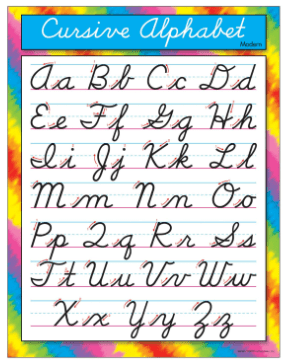 Cursive Alphabet
Modern
Aa Bb Cc Dd
Ee Ff Gg Hh
Ii Jj Kk Ll
Mm Nn Oo
Pp Qq Rr Ss
Tt Uu Vv Ww
Xx Yy Zz